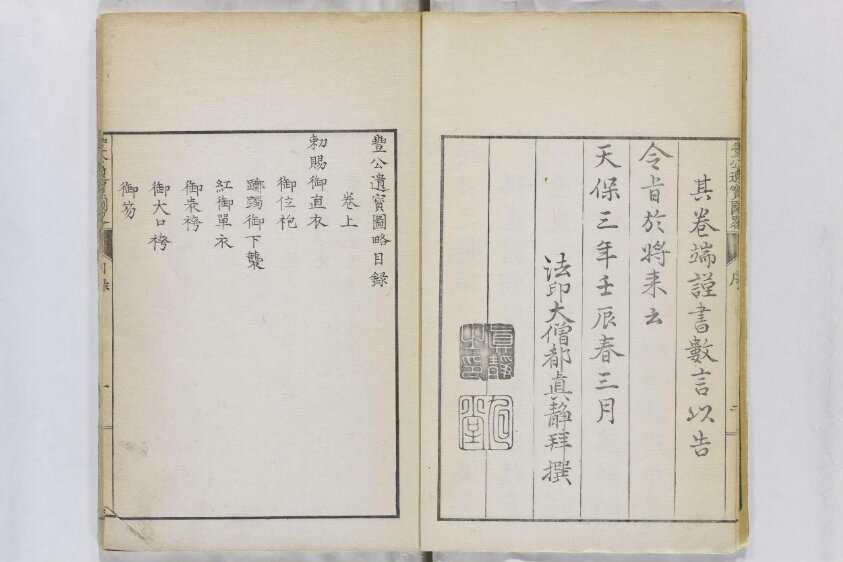 其卷端謹書數言以告
今旨於將来云
天保三年壬辰春三月
法印大僧都眞静拜撰
眞静
豐公遺寶圖略
序
二
豐公遺寶圖略目録
卷上
勅賜御直衣
御位袍
躑躅御下襲
紅御單衣
御表袴
御大口袴
御笏
目録
一